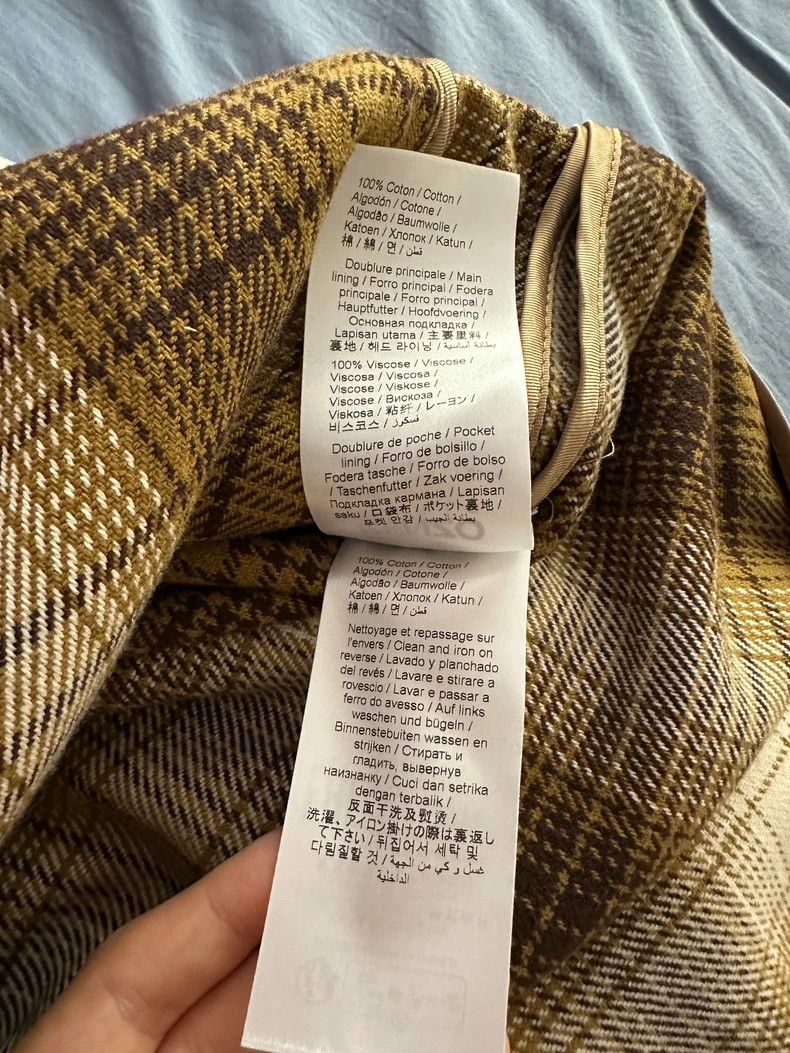 100% Coton / Cotton /
Algodón / Cotone /
Algodão / Baumwolle /
Katoen / Хлопок / Katun /
棉 / 綿 / 면 / قطن
Doublure principale / Main
lining / Forro principal / Fodera
principale / Forro principal /
Hauptfutter / Hoofdvoering /
Основная подкладка /
Lapisan utama / 主要里料 /
裏地 / 헤드 라이닝 / بطانة أساسية
100% Viscose / Viscose /
Viscosa / Viscosa /
Viscose / Viskose /
Viscose / Вискоза /
Viskosa / 粘纤 / レーヨン /
비스코스 / فسكوز
Doublure de poche / Pocket
lining / Forro de bolsillo /
Fodera tasche / Forro de bolso
/ Taschenfutter / Zak voering /
Подкладка кармана / Lapisan
saku / 口袋布 / ポケット裏地 /
포켓 안감 / بطانة الجيب
100% Coton / Cotton /
Algodón / Cotone /
Algodão / Baumwolle /
Katoen / Хлопок / Katun /
棉 / 綿 / 면 / قطن
Nettoyage et repassage sur
l'envers / Clean and iron on
reverse / Lavado y planchado
del revés / Lavare e stirare a
rovescio / Lavar e passar a
ferro do avesso / Auf links
waschen und bügeln /
Binnenstebuiten wassen en
strijken / Стирать и
гладить, вывернув
наизнанку / Cuci dan setrika
dengan terbalik /
反面干洗及熨烫 /
洗濯、アイロン掛けの際は裏返し
て下さい / 뒤집어서 세탁 및
다림질할 것 / غسل و كي من الجهة
الداخلية